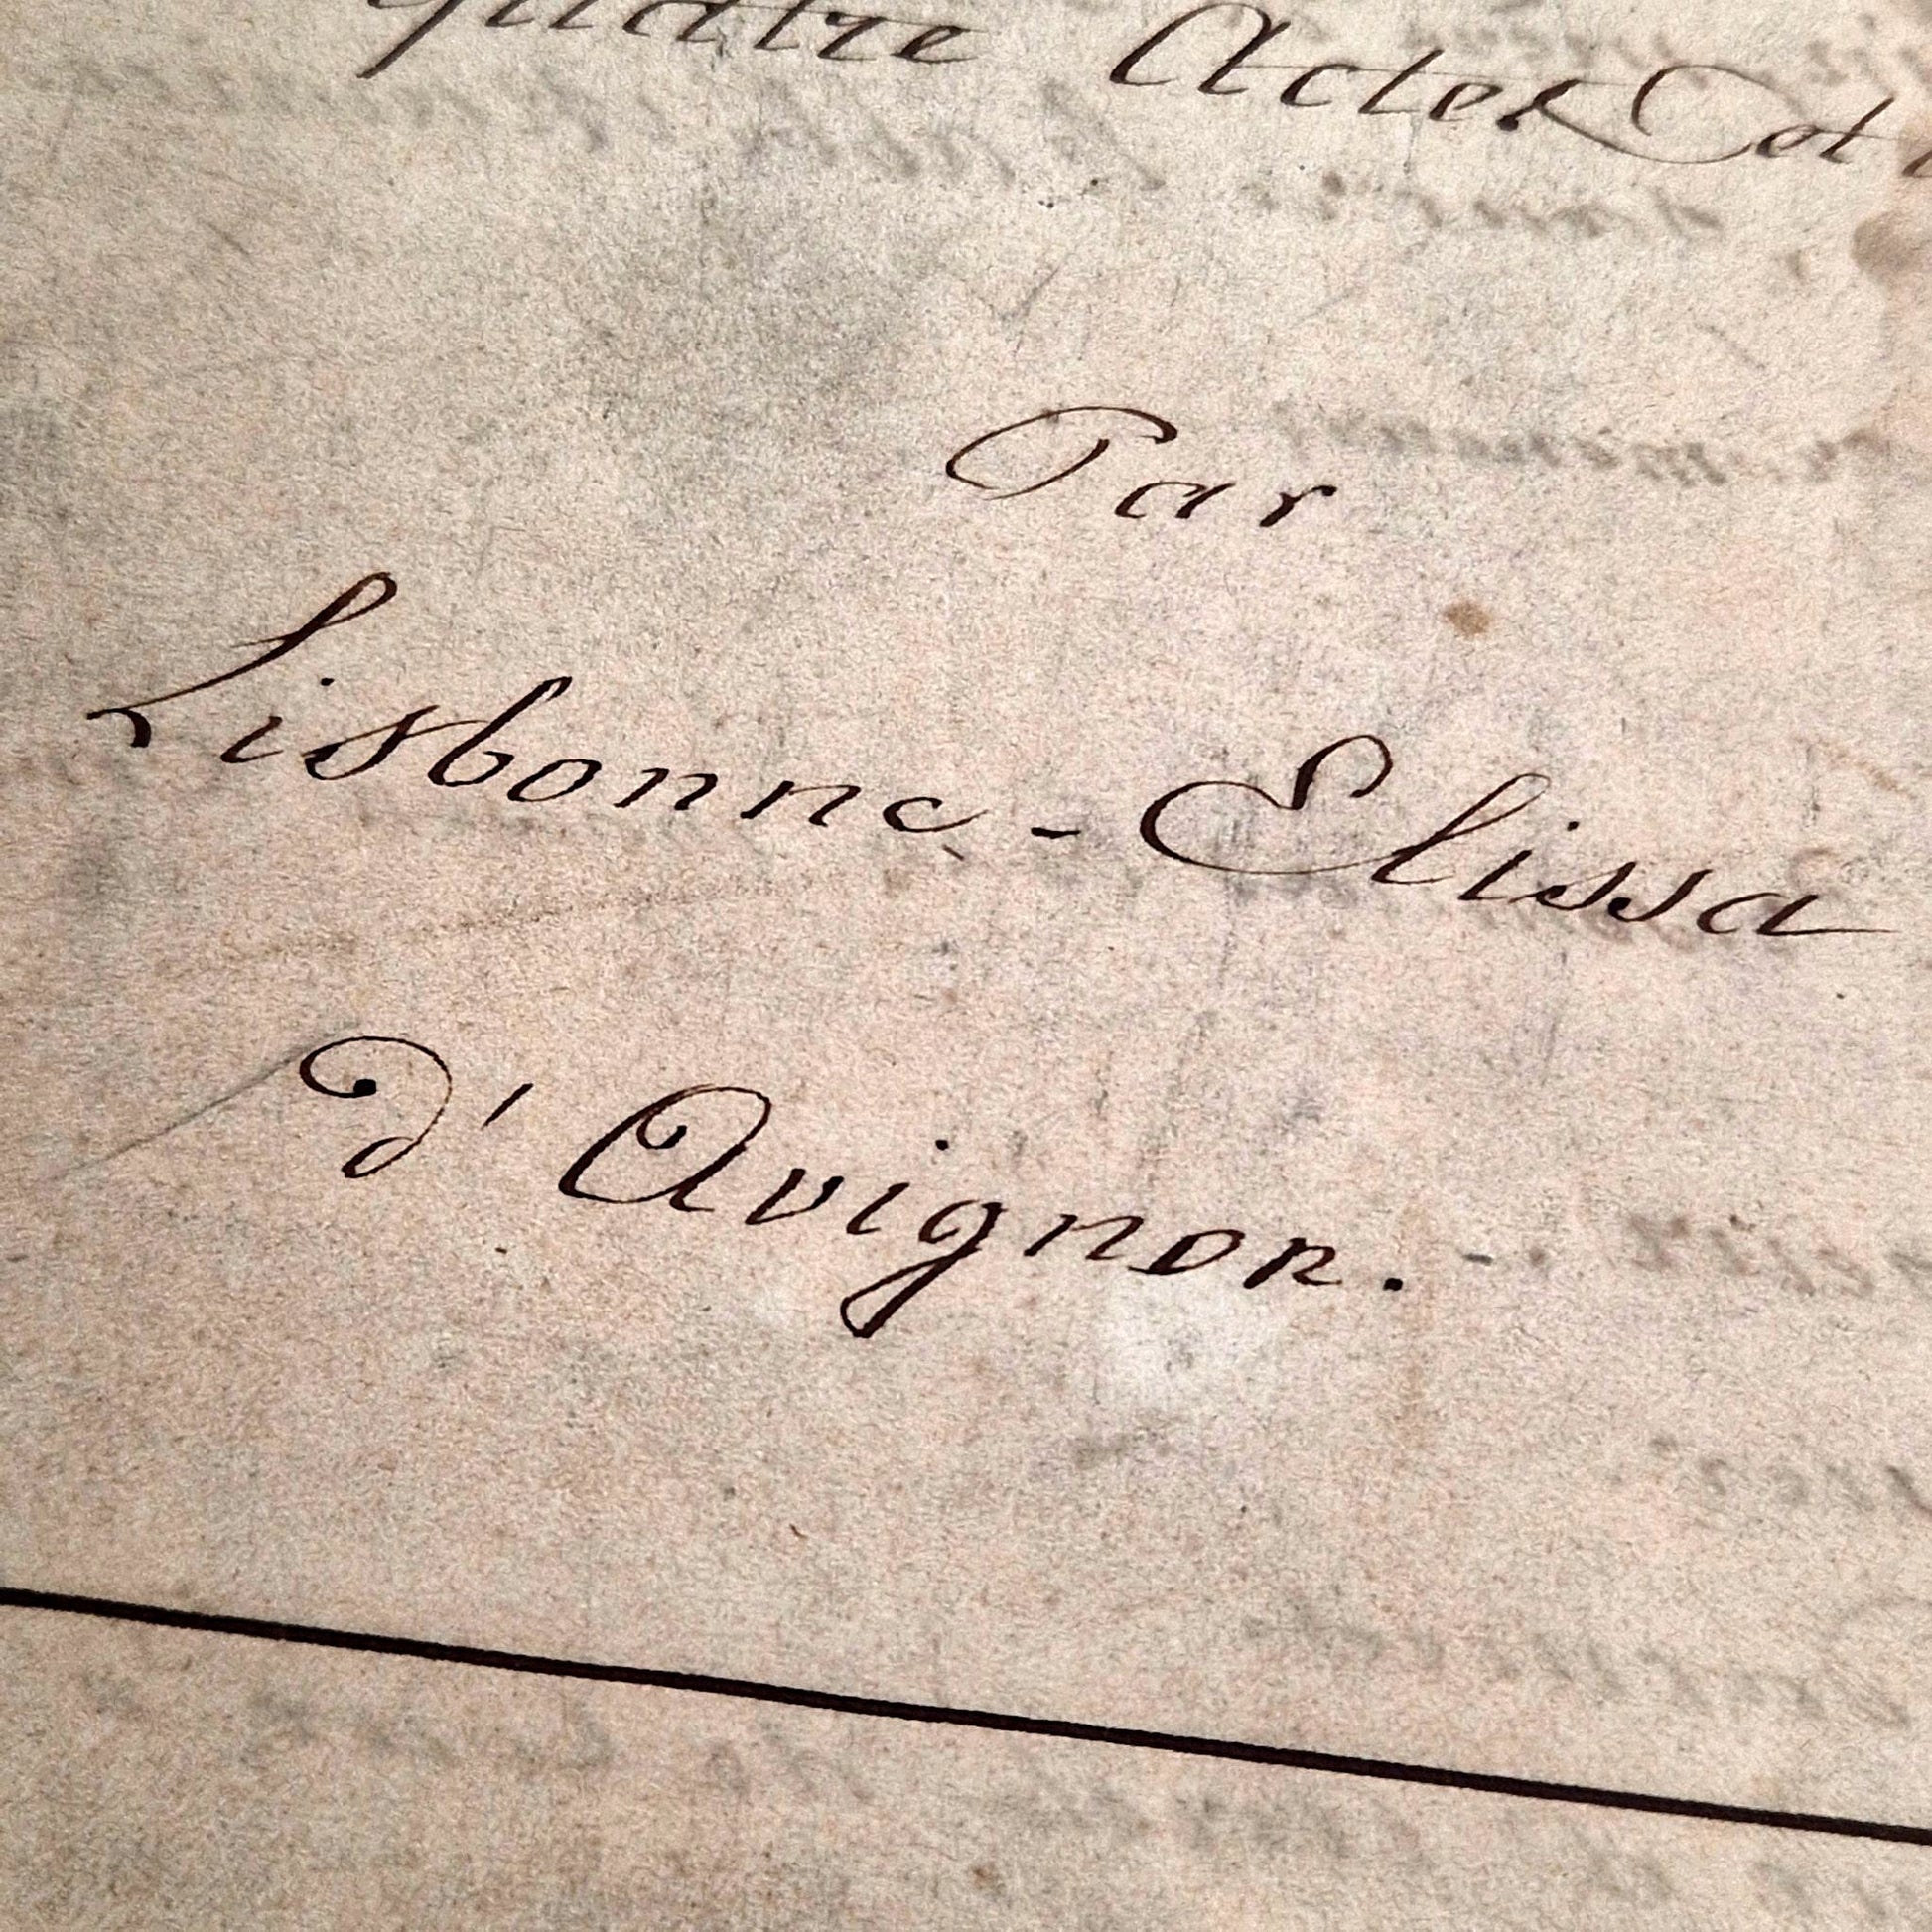 quatre Actes et
Par
Lisbonne - Elissa
d'Avignon.